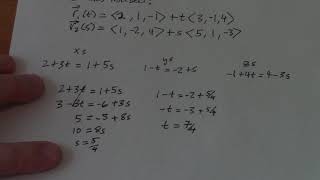 r₁(t) = <2, 1, -1> + t<3, -1, 4>
r₂(s) = <1, -2, 4> + s<5, 1, -3>
xs ys zs
2+3t = 1+5s 1-t = -2+s -1+4t = 4-3s
2+3t = 1+5s
3-3t = -6+3s
5 = -5+8s
10 = 8s
s = 5/4
1-t = -2+5/4
-t = -3+5/4
t = 7/4